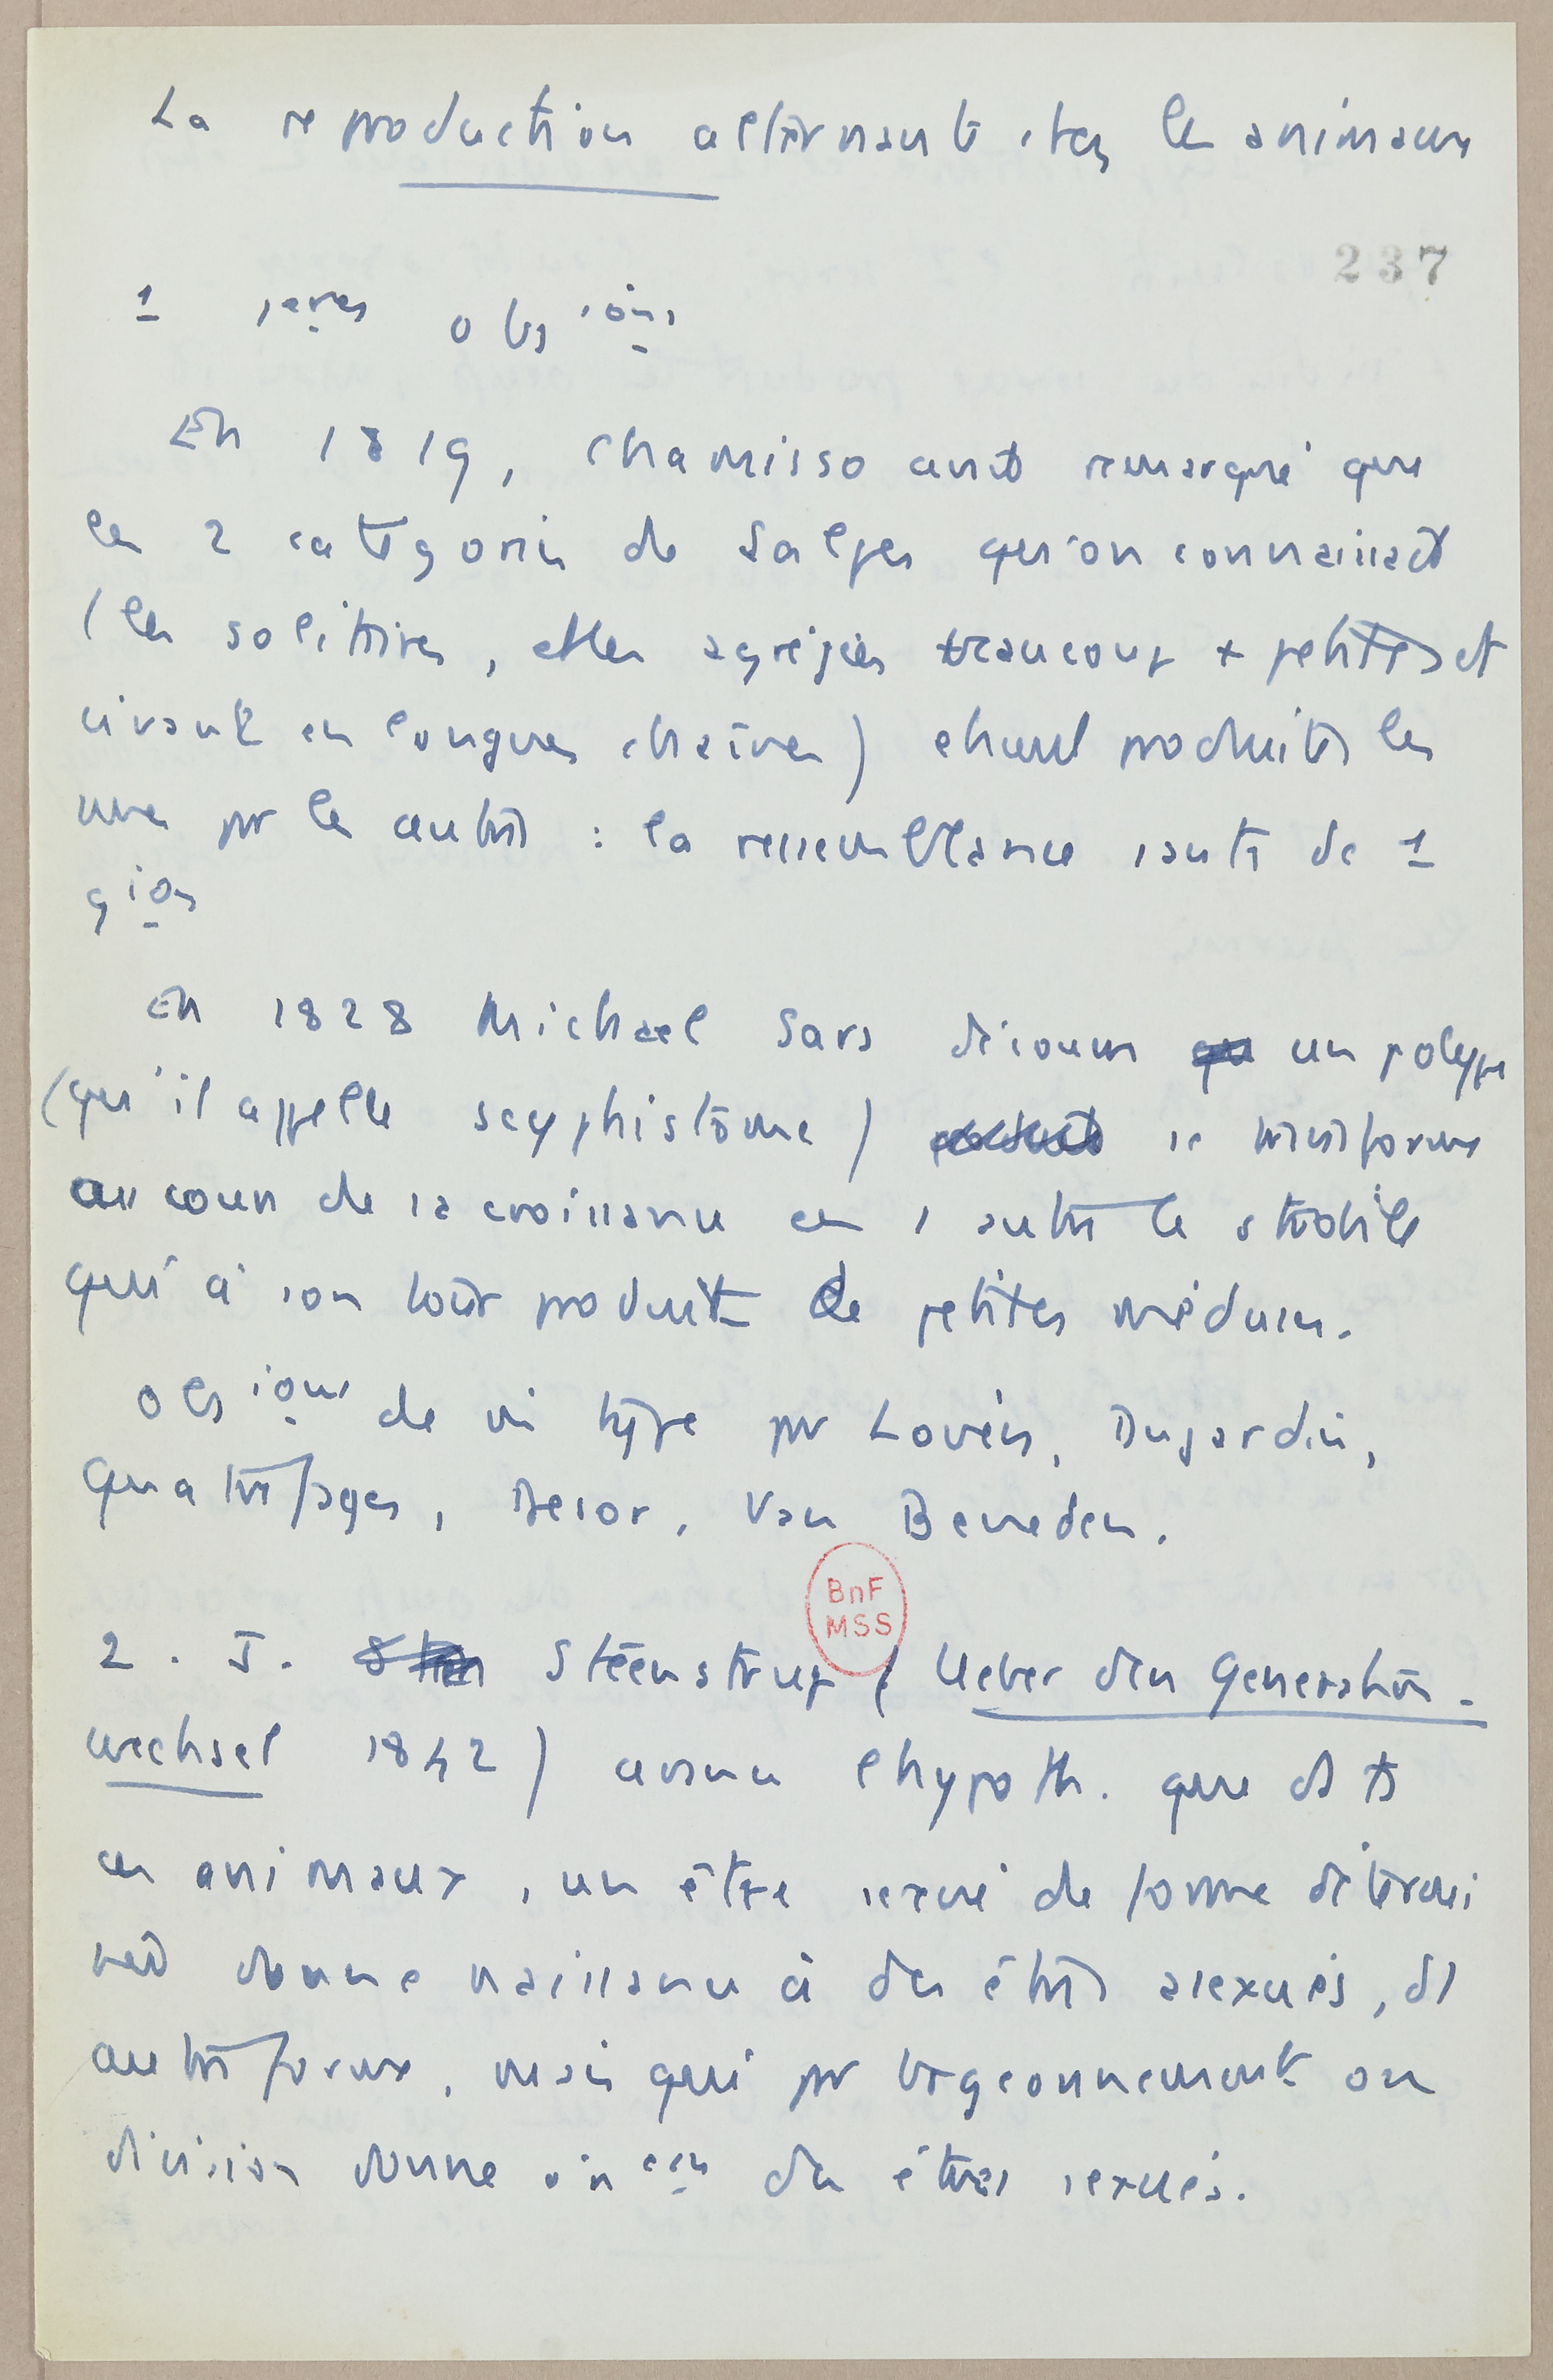 La reproduction alternante chez les animaux
237
1 1eres obsions
En 1819, Chamisso avait remarqué que
les 2 catégories de Salpes qu'on connaissait
(les solitaires, et les agrégées beaucoup + petites et
vivant en longues chaînes) étaient produites les
unes par les autres : la ressemblance saute de 1
gion
En 1828 Michael Sars découvre un polype
(qu'il appelle scyphistome) se transforme
au cours de sa croissance en 1 autre le strobile
qui à son tour produit de petites méduses.
Obsions de ce type par Lovén, Dujardin,
Quatrefages, Desor, Van Beneden.
2. J. Steenstrup (Ueber den Generation-
BnF
MSS
wechsel 1842) avance l'hypoth. que ds ts
ces animaux, un être sexué de forme détermi
née donne naissance à des êtres asexués, d'
autre forme, mais qui par bourgeonnement ou
division donne des êtres sexués.